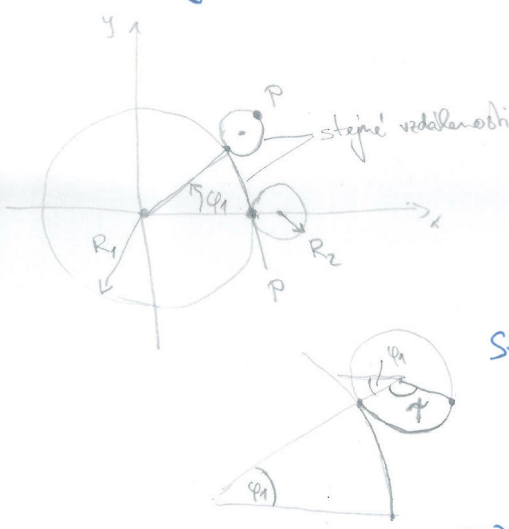 y
P
stejné vzdálenosti
φ1
x
R1
R2
P
φ1
S
ψ
φ1